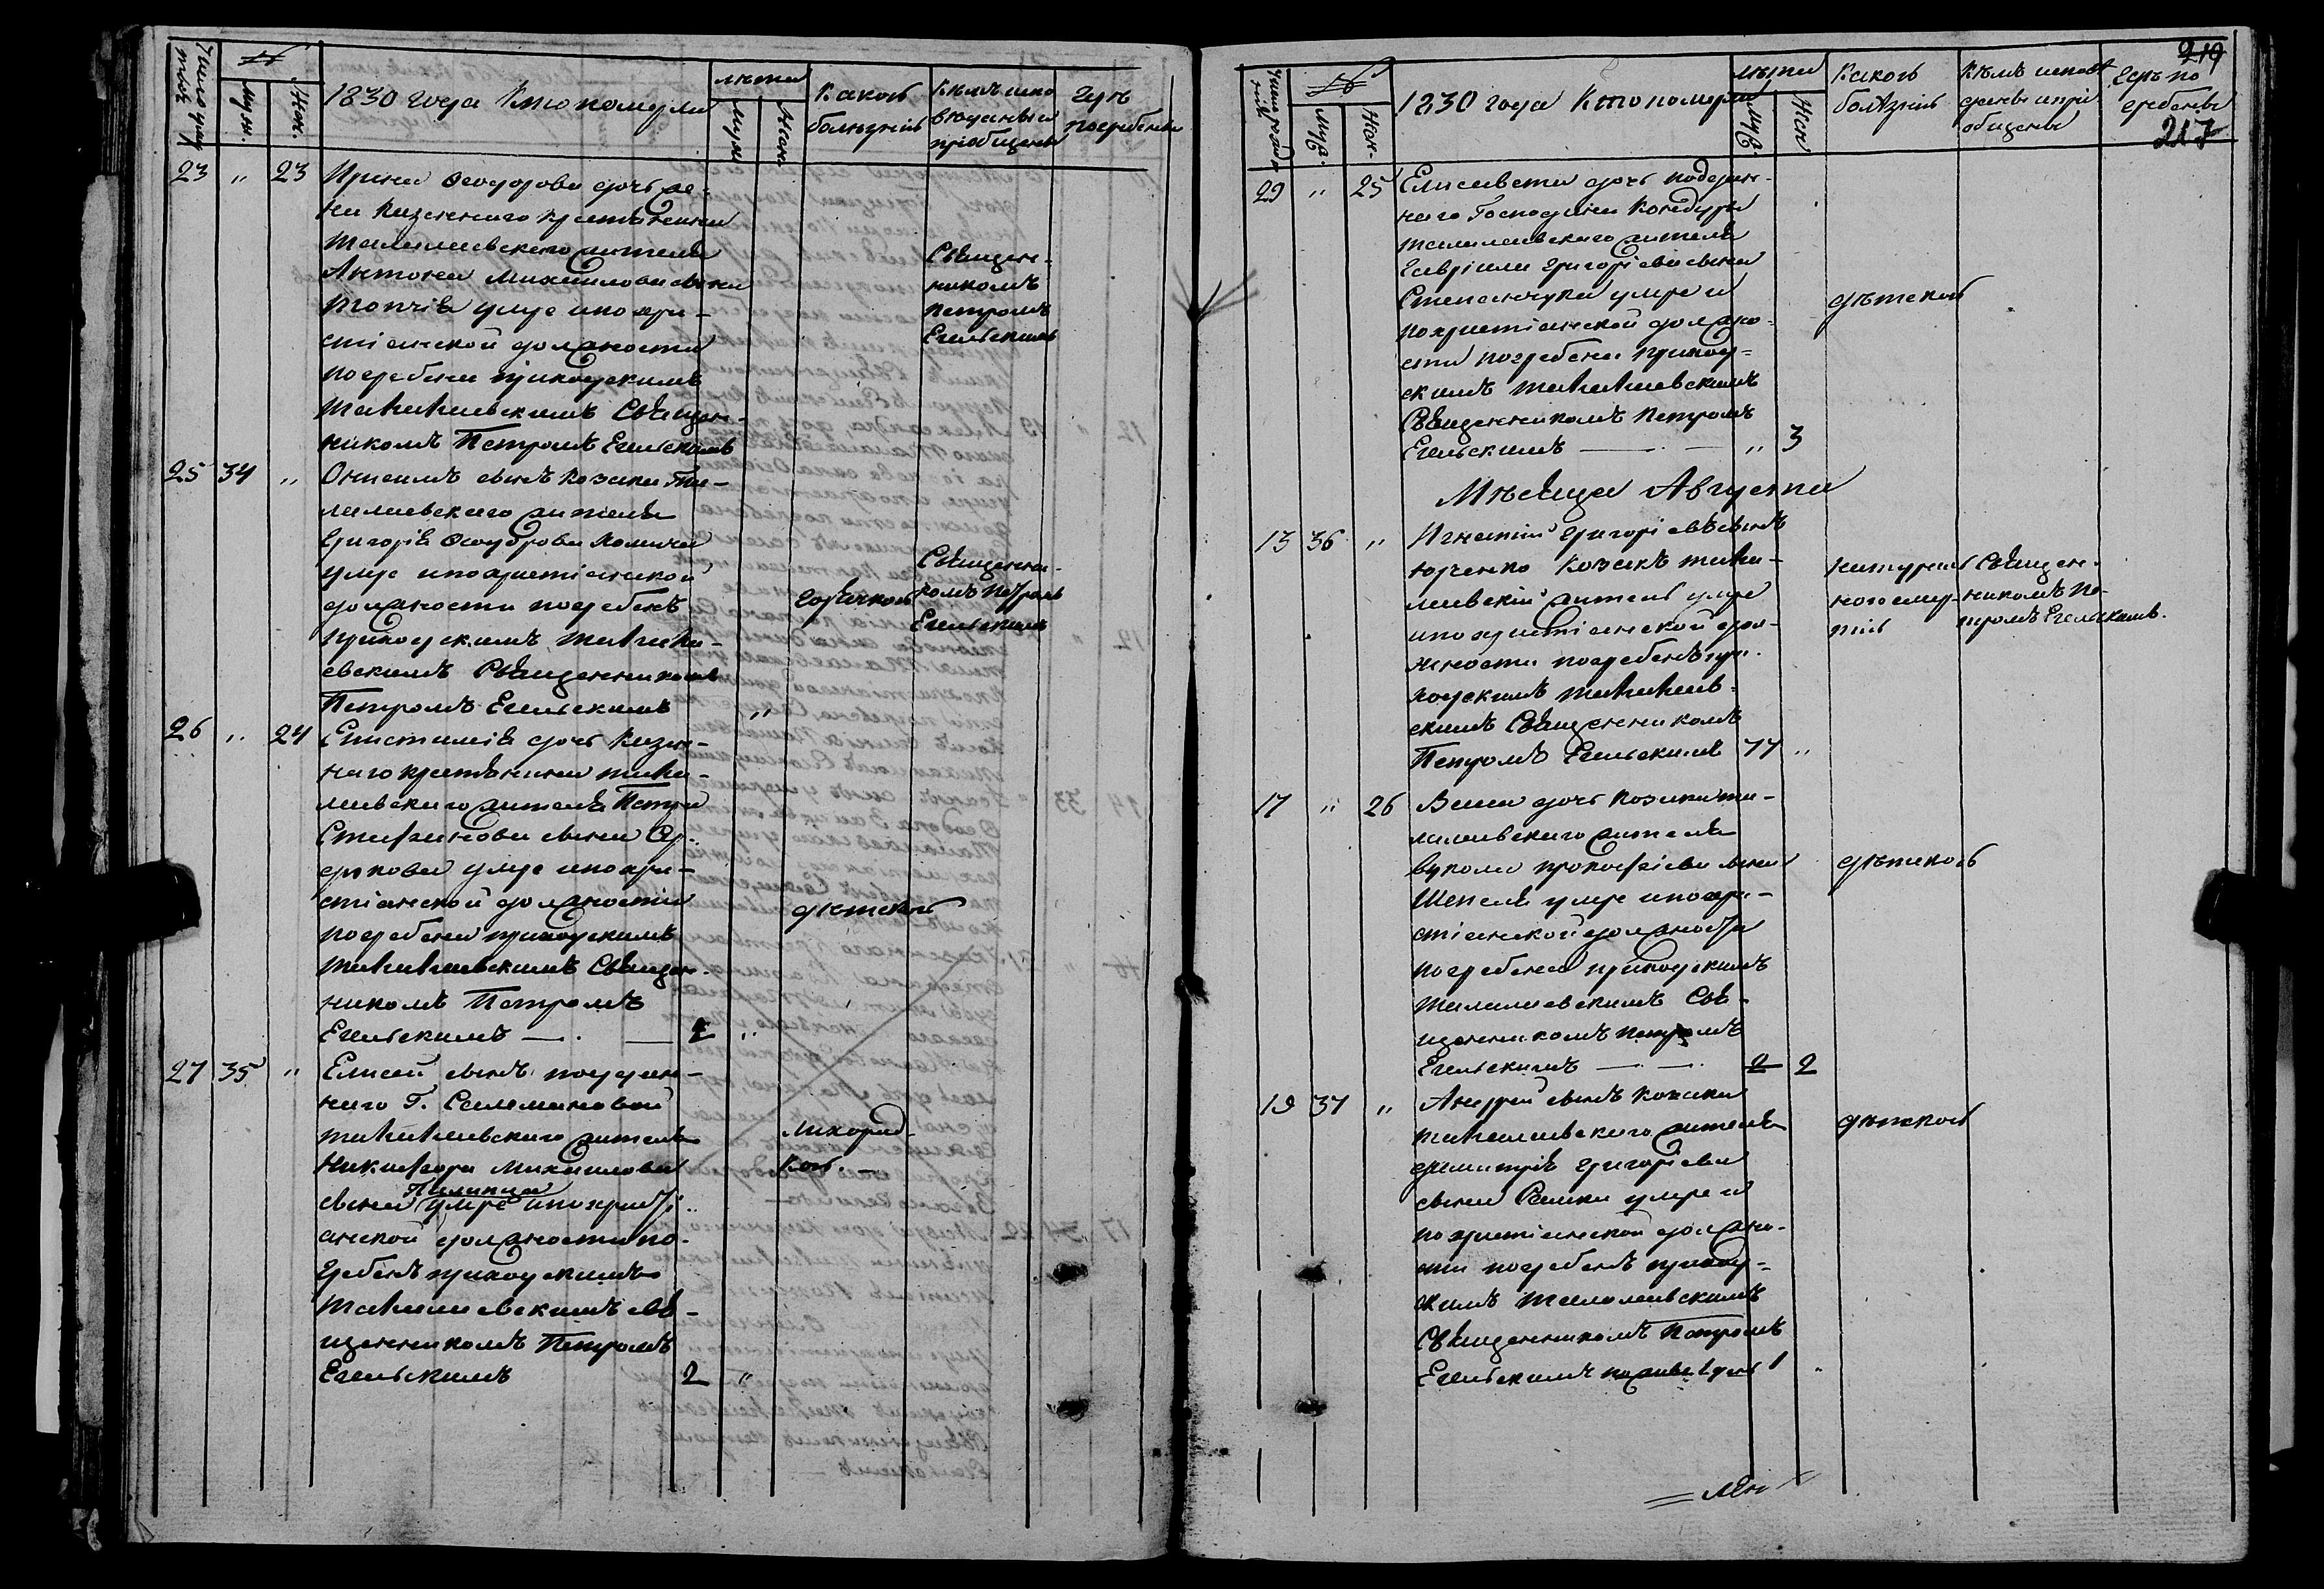 Число умер
тпъ
№
Муж.
Жен.
1830 года Кто померли
лѣта
Муж
Жен
Какою
болѣзнію
Кѣмъ испо
вѣдованы и
пріобщены
Гдѣ
погребены
23 „ 23 Ирина Ѳеодорова дочь же-
на казеннаго крестьянина
жителя
Антона Михаилова сына
умре и по хри-
стіанской должности
погребена приходскимъ
Священ-
никомъ Петромъ Егельскимъ
Священ-
никомъ
Петромъ
Егельскимъ
25 34 „ Онисимъ сынъ козака Та-
лалаевского жителя
Григорія Ѳеодорова
умре и по христіанской
должности погребенъ
приходскимъ Талала-
евскимъ Священникомъ
Петромъ Егельскимъ „
горячкою
Священни-
комъ Петромъ
Егельскимъ
26 „ 24 Епистимія дочь казен-
наго крестьянина Тала-
лаевского жителя Петра
Стефанова сына
умре и по хри-
стіанской должности
погребена приходскимъ
Талалаевскимъ Священ-
никомъ Петромъ
Егельскимъ — . — 2 „
дѣтскою
27 35 „ Елисей сынъ поддан-
наго Г. Селемановой
Талалаевского жителя
Никифора Михаилова
Пилипца
сына умре и по христі-
анской должности по-
гребенъ приходскимъ
Талалаевскимъ свя-
щенникомъ Петромъ
Егельскимъ 2 „
лихорад-
кою —
219
217
№
Муж.
Жен.
1830 года Кто померли
лѣта
Муж.
Жен
Какою
болѣзнію
Кѣмъ исповѣ
даны и прі
общены
Гдѣ по
гребены
29 „ 25 Елисавета дочь поддан-
наго Господина Кочубея
Талалаевского жителя
Гавріила Григоріева сына
Степанчука умре и
по христіанской должно-
сти погребена приход-
скимъ Талалаевскимъ
Священникомъ Петромъ
Егельскимъ — . — „ 3
дѣтскою
Мѣсяца Августа
13 36 „ Игнатій Григоріевъ сынъ
Юрченко Козакъ Тала-
лаевскій житель умре
и по христіанской дол-
жности погребенъ при-
ходскимъ Талалаев-
скимъ Священникомъ
Петромъ Егельскимъ 77 „
натураль
ною смер-
тію
Священ-
никомъ Пе-
тромъ Егельскимъ.
17 „ 26 Васса дочь козака Та-
лалаевского жителя
Вукола Прокофіева сына
Шепеля умре и по хри-
стіанской должности
погребена приходскимъ
Талалаевскимъ Свя-
щенникомъ Петромъ
Егельскимъ — . — . 2 2
дѣтскою
19 37 „ Андрей сынъ козака
Талалаевского жителя
Димитрія Григоріева
сына умре и
по христіанской должно-
сти погребенъ приход-
скимъ Талалаевскимъ
Священникомъ Петромъ
Егельскимъ 1 „
дѣтскою